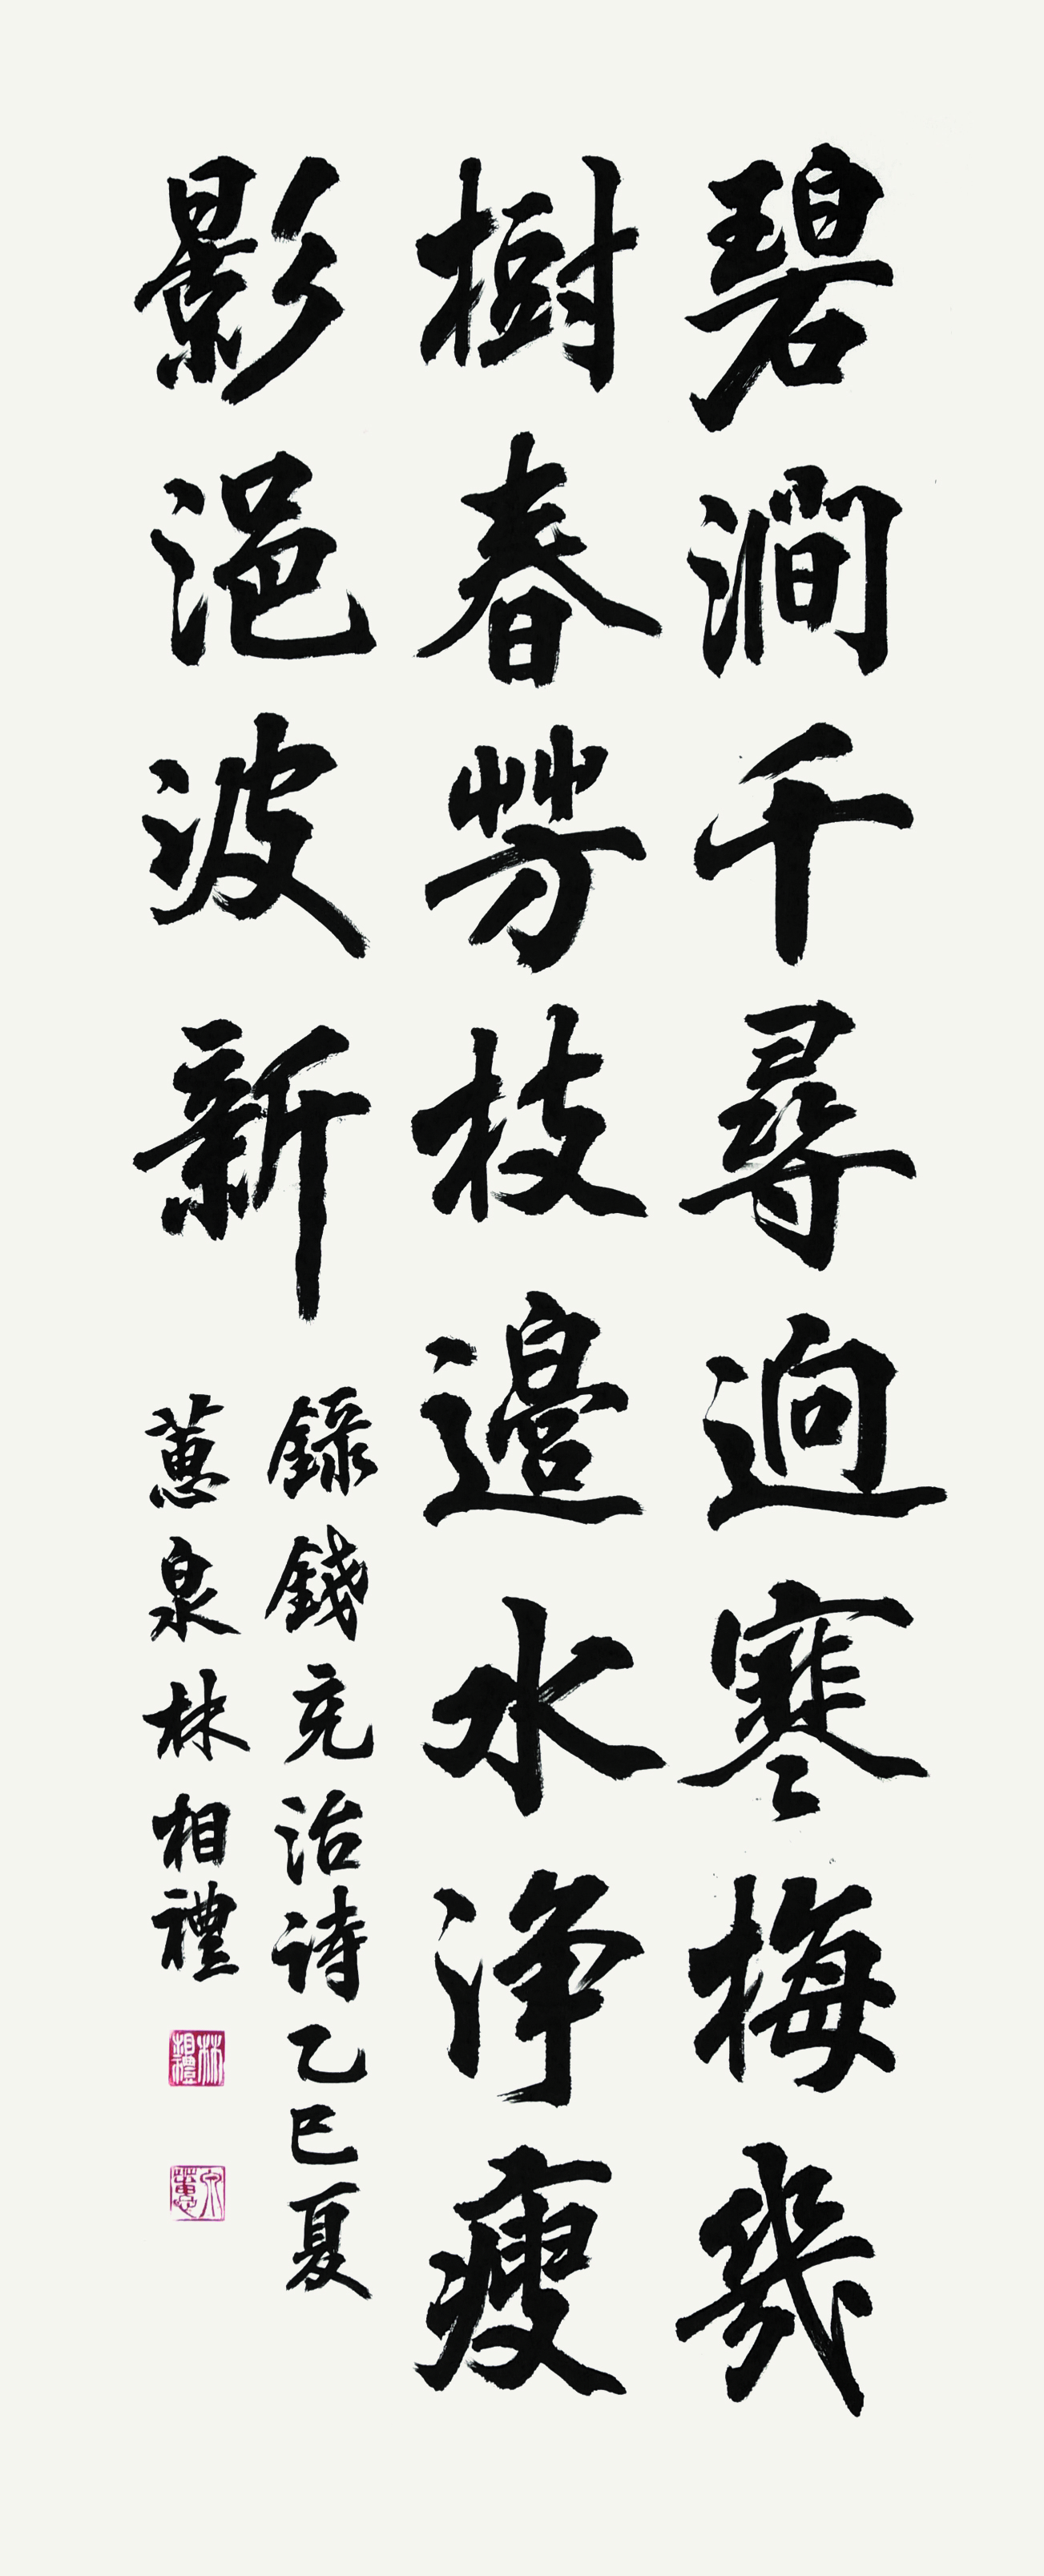 碧澗千尋迥寒梅幾
樹春芳枝邊水淨瘦
影浥波新
錄錢充治詩乙巳夏
蕙泉林相禮
林相禮
蕙泉